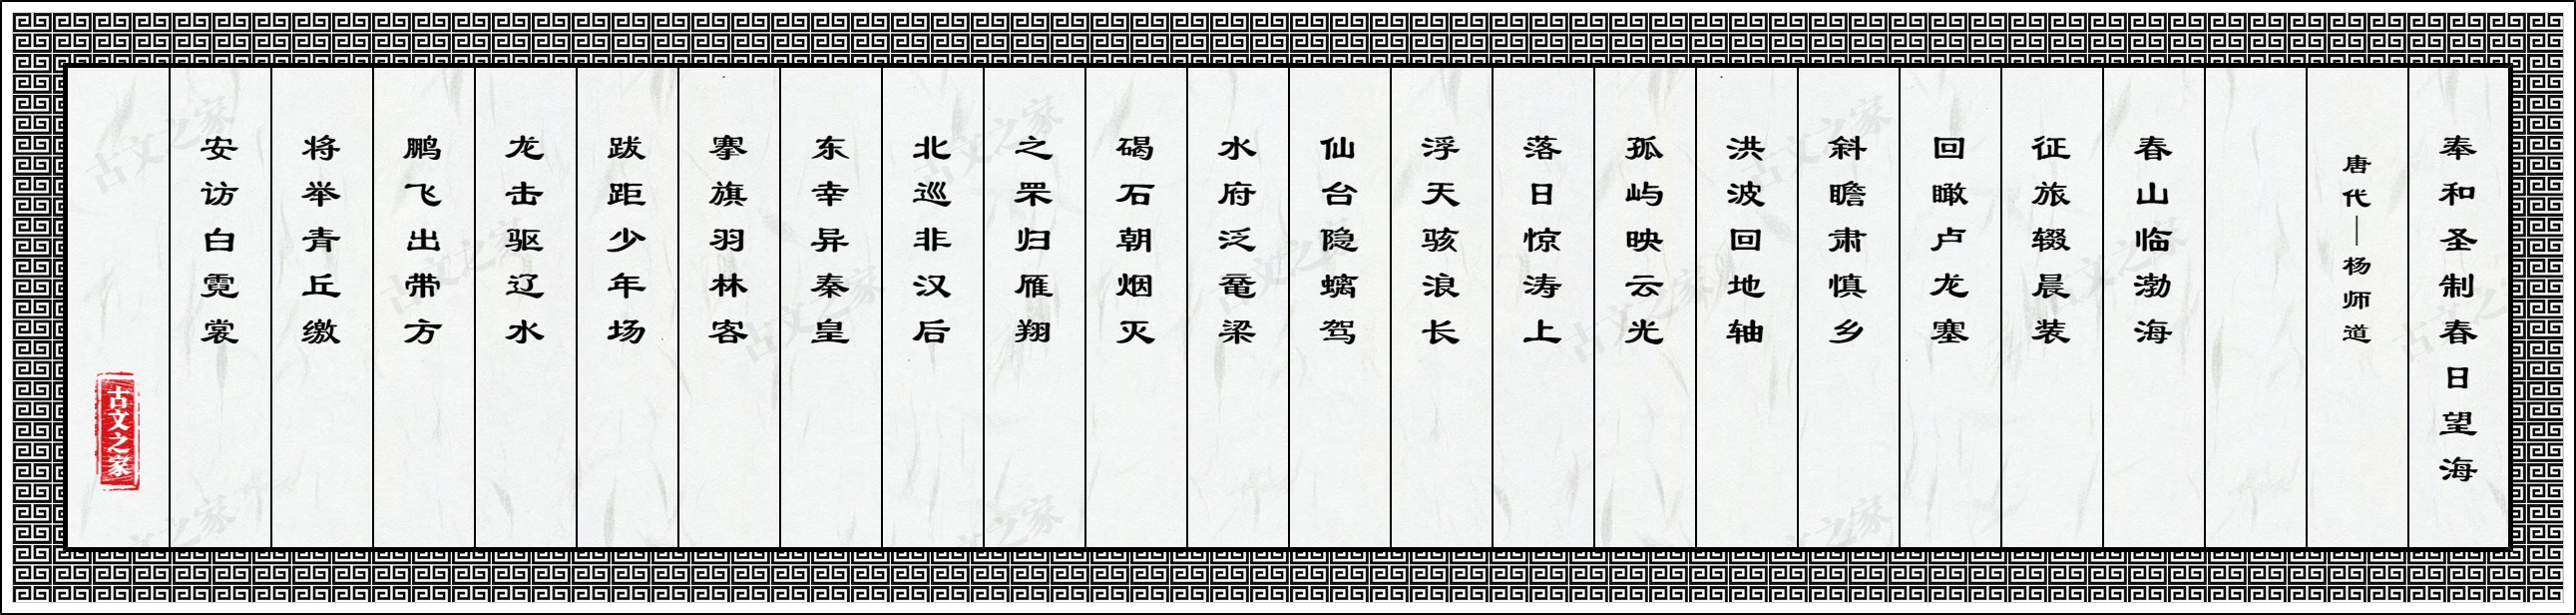 奉和圣制春日望海
唐代—杨师道
春山临渤海
征旅辍晨装
回瞰卢龙塞
斜瞻肃慎乡
洪波回地轴
孤屿映云光
落日惊涛上
浮天骇浪长
仙台隐螭驾
水府泛鼋梁
碣石朝烟灭
之罘归雁翔
北巡非汉后
东幸异秦皇
搴旗羽林客
跋距少年场
龙击驱辽水
鹏飞出带方
将举青丘缴
安访白霓裳
古文之家